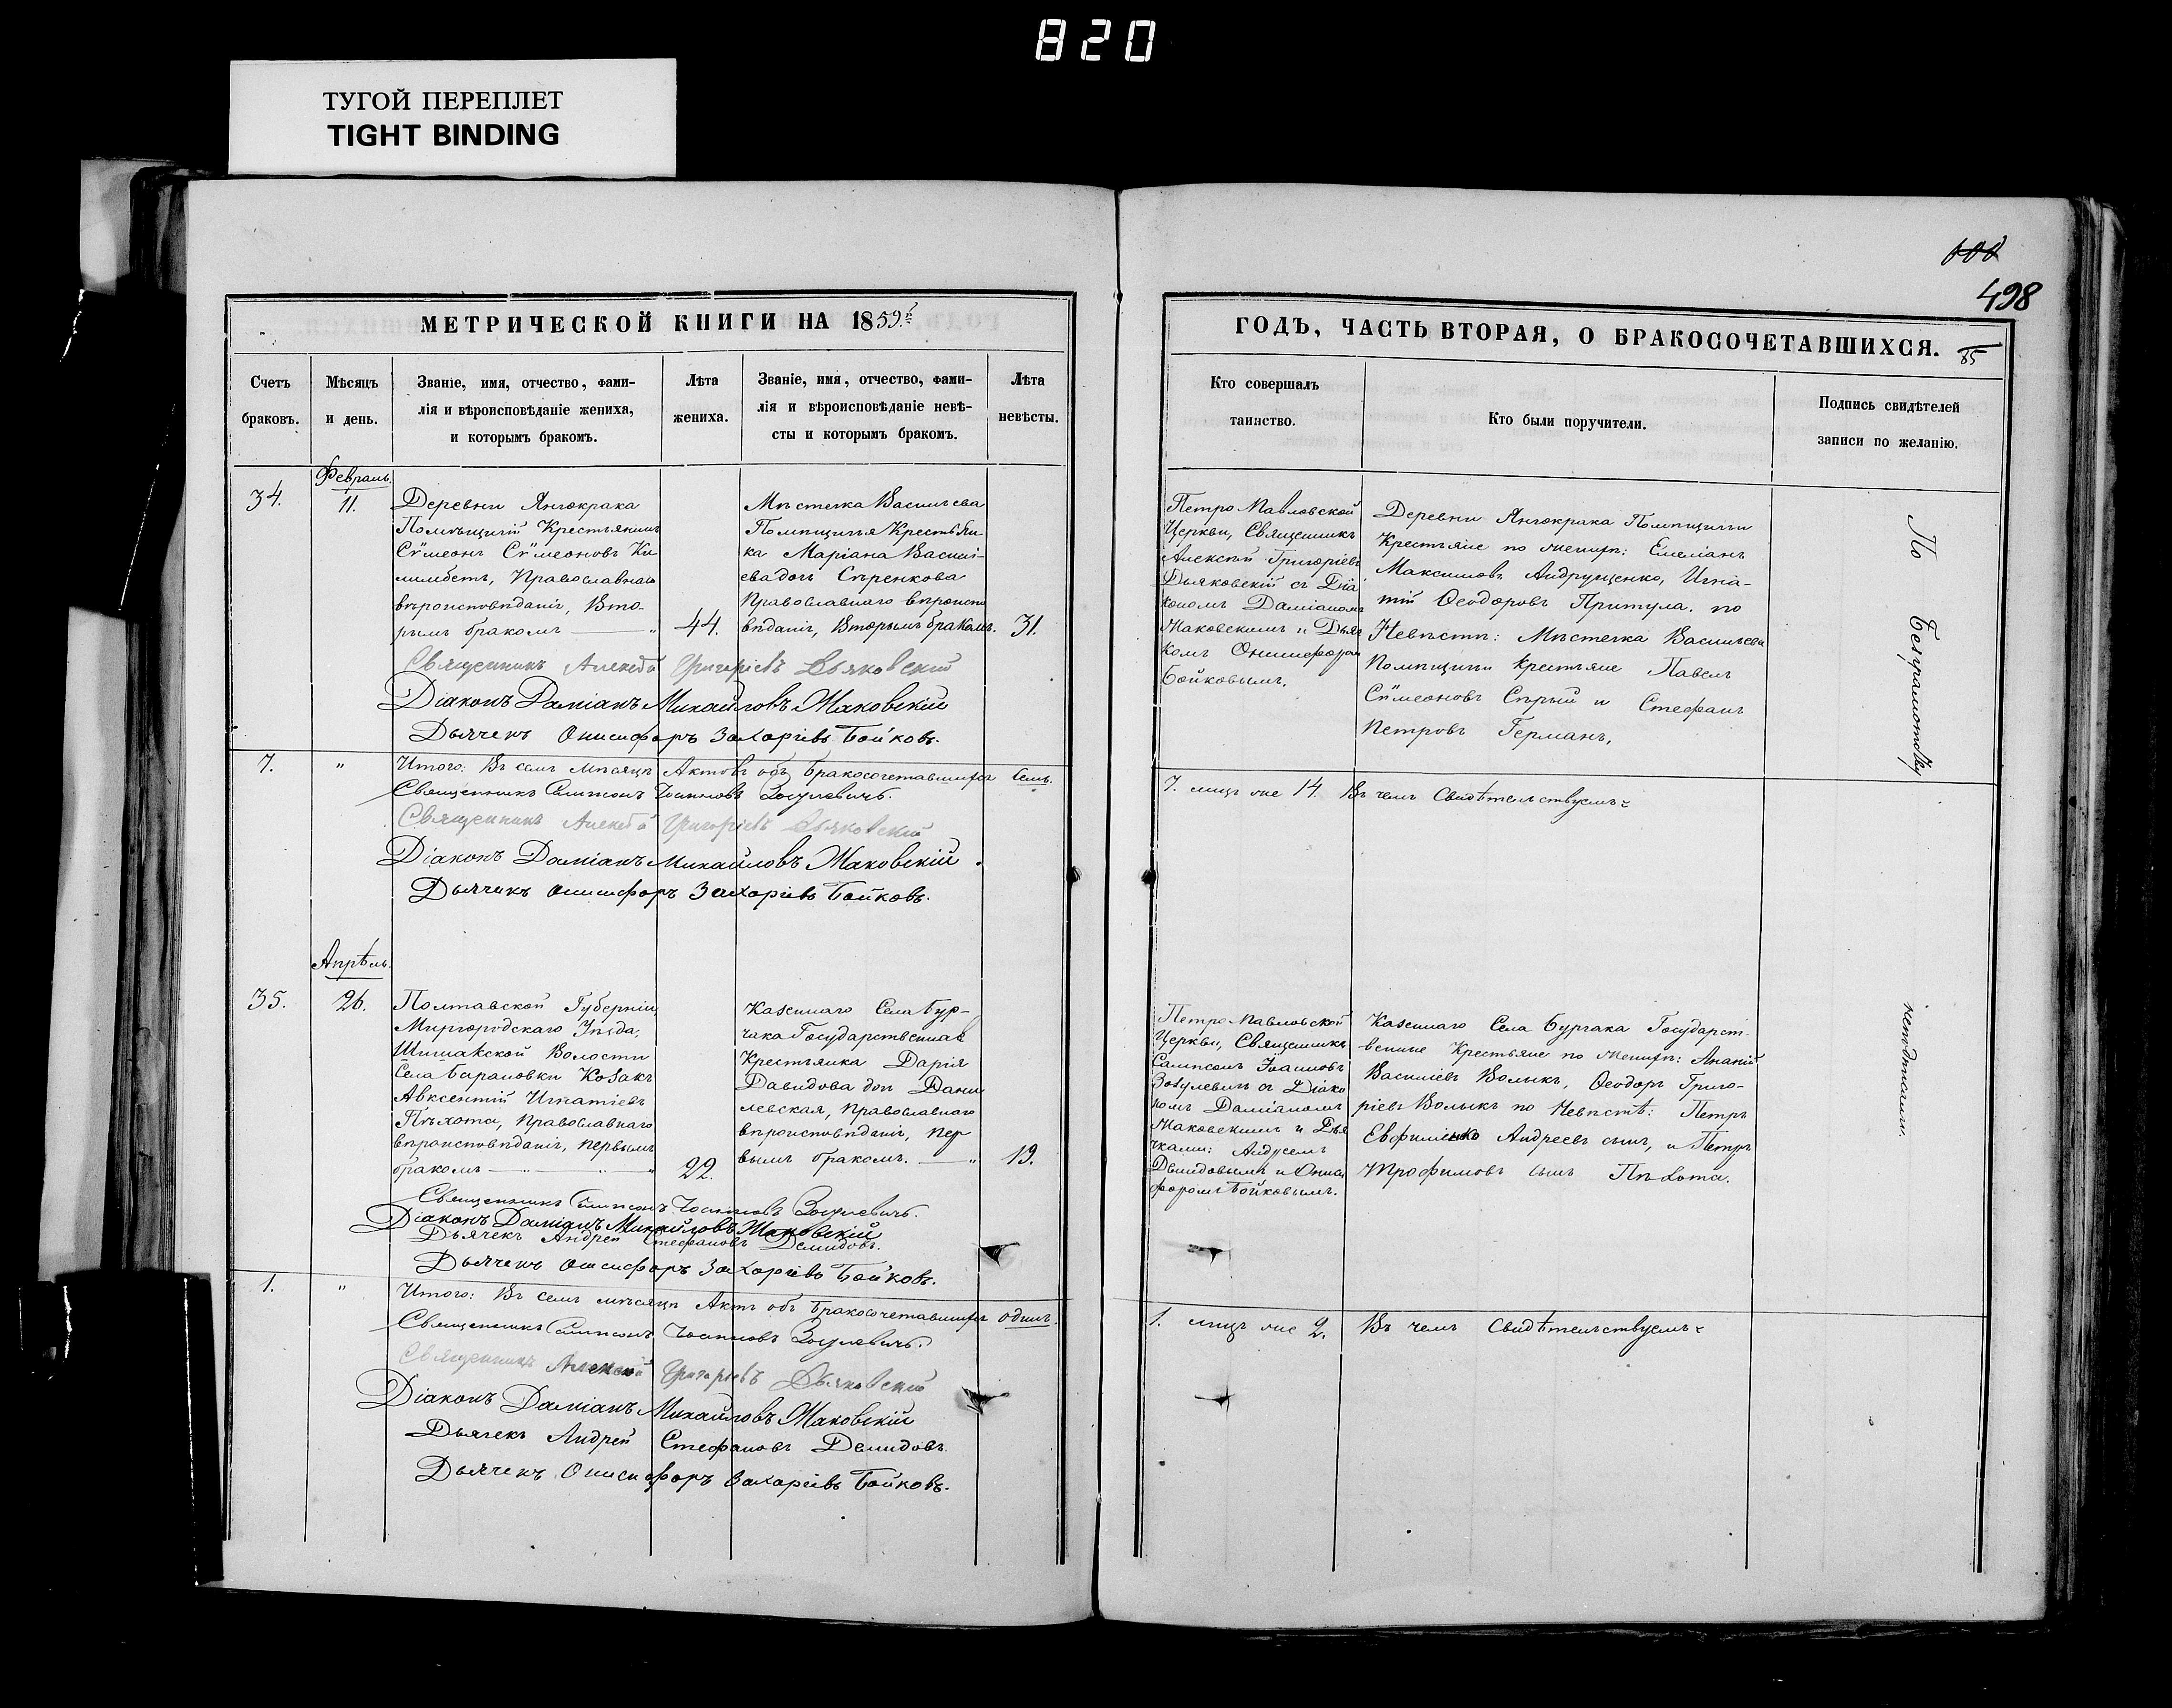 820
ТУГОЙ ПЕРЕПЛЕТ
TIGHT BINDING
МЕТРИЧЕСКОЙ КНИГИ НА 1859.
Счетъ браковъ.
Мѣсяцъ и день.
Званіе, имя, отчество, фами-
лія и вѣроисповѣданіе жениха,
и которымъ бракомъ.
Лѣта
жениха.
Званіе, имя, отчество, фами-
лія и вѣроисповѣданіе невѣ-
сты и которымъ бракомъ.
Лѣта
невѣсты.
Февраль.
34.
11.
Деревни Янчокрака
Помѣщичій Крестьянинъ
Сѷмеонъ Сѷмеоновъ Ки-
лимбетъ, Православнаго
вѣроисповѣданія, Вто-
рымъ бракомъ
44.
Мѣстечка Васильева
Помѣщичья Крестьян-
ка Маріана Василі-
ева дочь Сѣренкова
Православнаго вѣроиспо
вѣданія, Вторымъ бракомъ.
31.
Священникъ Алексѣй Григоріевъ Дьяковскій
Діаконъ Даміанъ Михайловъ Маковскій
Дьячекъ Онисифоръ Захаріевъ Бойковъ.
7. " Итого: Въ семъ мѣсяцѣ Актовъ объ бракосочетавшихся Семь.
Священникъ Сампсонъ Іоанновъ Зосулевичъ.
Священникъ Алексѣй Григоріевъ Дьяковскій
Діаконъ Даміанъ Михайловъ Маковскій.
Дьячекъ Онисифоръ Захаріевъ Бойковъ.
Апрѣль.
35.
26.
Полтавской Губерніи
Миргородскаго Уѣзда,
Шишакской Волости
Села Барановки Козакъ
Авксентій Игнатіевъ
Пѣхота, Православнаго
вѣроисповѣданія, первымъ
бракомъ
22.
Казеннаго Села Бур-
чака Государственная
Крестьянка Дарія
Давидова дочь Дани
левская, Православнаго
вѣроисповѣданія, пер
вымъ бракомъ.
19.
Священникъ Сампсонъ Іоанновъ Зосулевичъ.
Діаконъ Даміанъ Михайловъ Маковскій
Дьячекъ Андрей Стефановъ Демидовъ.
Дьячекъ Онисифоръ Захаріевъ Бойковъ.
1. " Итого: Въ семъ мѣсяцѣ Актъ объ бракосочетавшихся одинъ.
Священникъ Сампсонъ Іоанновъ Зосулевичъ.
Священникъ Алексѣй Григоріевъ Дьяковскій
Діаконъ Даміанъ Михайловъ Маковскій
Дьячекъ Андрей Стефановъ Демидовъ.
Дьячекъ Онисифоръ Захаріевъ Бойковъ.
498
ГОДЪ, ЧАСТЬ ВТОРАЯ, О БРАКОСОЧЕТАВШИХСЯ.
85
Кто совершалъ
таинство.
Кто были поручители.
Подпись свидѣтелей
записи по желанію.
Петро Павловской
Церкви, Священникъ
Алексѣй Григоріевъ
Дьяковскій съ Діа
кономъ Даміаномъ
Маковскимъ и Дьяч
комъ Онисифоромъ
Бойковымъ.
Деревни Янчокрака Помѣщичьи
Крестьяне по женихѣ: Емеліанъ
Максимовъ Андрущенко, Игна-
тій Ѳеодоровъ Притула. по
Невѣстѣ: Мѣстечка Васильева
Помѣщичьи крестьяне Павелъ
Сѷмеоновъ Сѣрый и Стефанъ
Петровъ Германъ,
По безграмотству
7. лицъ же 14. Въ чемъ Свидѣтельствуемъ:
Петро Павловской
Церкви, Священникъ
Сампсонъ Іоанновъ
Зосулевичъ съ Діако
номъ Даміаномъ
Маковскимъ и Дья
чками: Андреемъ
Демидовымъ и Ониси
форомъ Бойковымъ.
Казеннаго Села Бурчака Государст-
венные Крестьяне по женихѣ: Ананій
Василіевъ Волыкъ, Ѳеодоръ Григо-
ріевъ Волыкъ по Невѣстѣ: Петръ
Евфименко Андреевъ сынъ, и Петръ
Трофимовъ сынъ Пѣхота.
неподписали.
1. лицъ же 2. Въ чемъ Свидѣтельствуемъ: